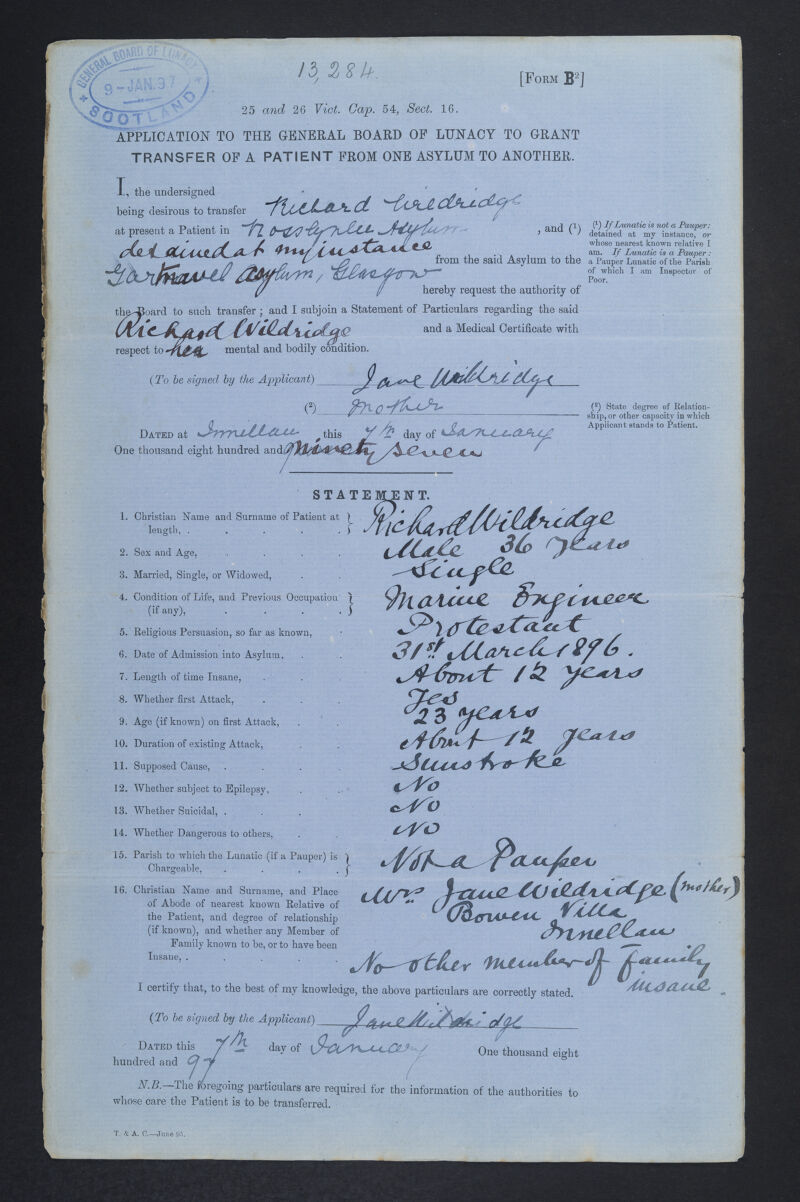 GENERAL BOARD OF LUNACY
9 - JAN. 97
SCOTLAND
13,284.
[FORM B²]
25 and 26 Vict. Cap. 54, Sect. 16.
APPLICATION TO THE GENERAL BOARD OF LUNACY TO GRANT
TRANSFER OF A PATIENT FROM ONE ASYLUM TO ANOTHER.
I, the undersigned
being desirous to transfer Richard Wildridge
at present a Patient in Rosslynlee Asylum, and (¹)
detained at my instance
from the said Asylum to the
Gartnavel Asylum, Glasgow
hereby request the authority of
the Board to such transfer; and I subjoin a Statement of Particulars regarding the said
Richard Wildridge and a Medical Certificate with
respect to her mental and bodily condition.
(¹) If Lunatic is not a Pauper:
detained at my instance, or
whose nearest known relative I
am. If Lunatic is a Pauper:
a Pauper Lunatic of the Parish
of which I am Inspector of
Poor.
(To be signed by the Applicant) Jane Wildridge
(²) Mother
(²) State degree of Relation-
ship, or other capacity in which
Applicant stands to Patient.
DATED at Innellan this 7th day of January
One thousand eight hundred and ninety seven
STATEMENT.
1. Christian Name and Surname of Patient at
length, . Richard Wildridge
2. Sex and Age, Male 36 years
3. Married, Single, or Widowed, Single
4. Condition of Life, and Previous Occupation
(if any), Marine Engineer
5. Religious Persuasion, so far as known, Protestant
6. Date of Admission into Asylum. 31st March 1896.
7. Length of time Insane, About 12 years
8. Whether first Attack, Yes
9. Age (if known) on first Attack, 23 years
10. Duration of existing Attack, About 12 years
11. Supposed Cause, Sunstroke
12. Whether subject to Epilepsy, No
13. Whether Suicidal, No
14. Whether Dangerous to others, No
15. Parish to which the Lunatic (if a Pauper) is
Chargeable, Not a Pauper
16. Christian Name and Surname, and Place
of Abode of nearest known Relative of
the Patient, and degree of relationship
(if known), and whether any Member of
Family known to be, or to have been
Insane,
Mrs Jane Wildridge (mother)
Bowen Villa
Innellan
No other member of family
insane.
I certify that, to the best of my knowledge, the above particulars are correctly stated.
(To be signed by the Applicant) Jane Wildridge
DATED this 7th day of January One thousand eight
hundred and 97
N.B.—The foregoing particulars are required for the information of the authorities to
whose care the Patient is to be transferred.
T. & A. C.—June 95.